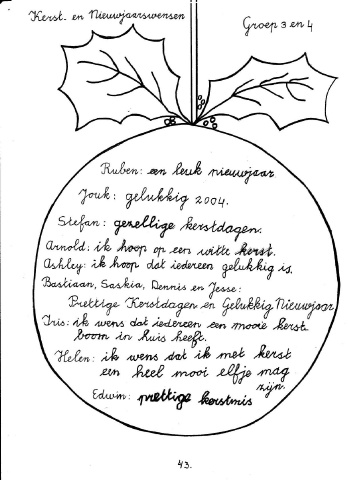 Kerst. en Nieuwjaarswensen
Groep 3 en 4
Ruben: een leuk nieuwjaar
Jouk: gelukkig 2004.
Stefan: gezellige kerstdagen.
Arnold: ik hoop op een witte kerst.
Ashley: ik hoop dat iedereen gelukkig is.
Bastiaan, Saskia, Dennis en Jesse:
Prettige Kerstdagen en Gelukkig Nieuwjaar
Iris: ik wens dat iedereen een mooie kerst
boom in huis heeft.
Helen: ik wens dat ik met kerst
een heel mooi elfje mag
zijn.
Edwin: prettige kerstmis
43.